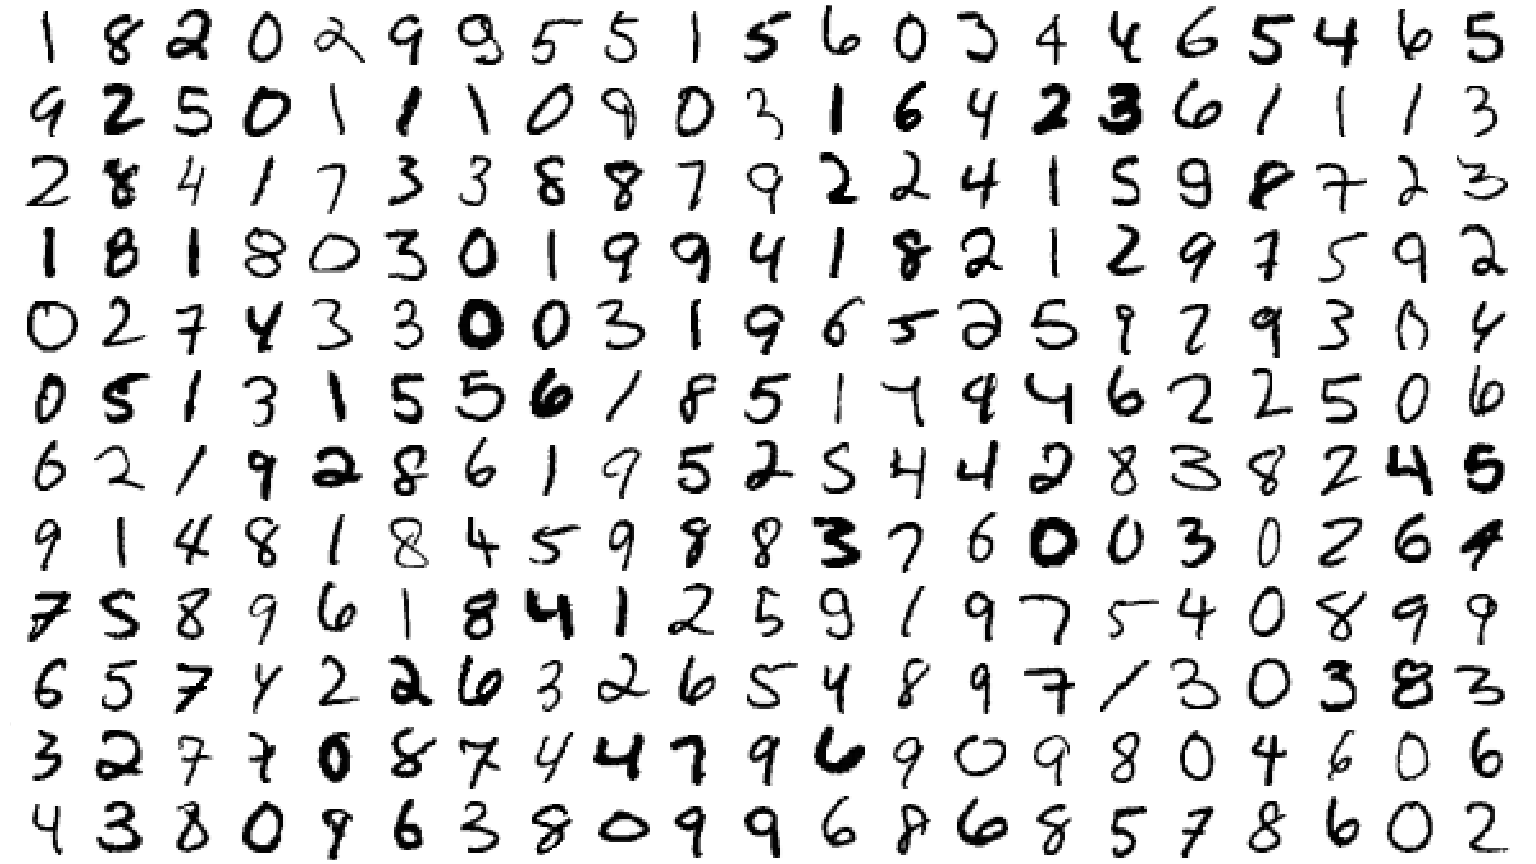 1 8 2 0 2 9 9 5 5 1 5 6 0 3 4 4 6 5 4 6 5
9 2 5 0 1 1 1 0 9 0 3 1 6 4 2 3 6 1 1 1 3
2 8 4 1 7 3 3 8 8 7 9 2 2 4 1 5 9 8 7 2 3
1 8 1 8 0 3 0 1 9 9 4 1 8 2 1 2 9 7 5 9 2
0 2 7 4 3 3 0 0 3 1 9 6 5 2 5 9 7 9 3 0 4
0 5 1 3 1 5 5 6 1 8 5 1 4 9 4 6 2 2 5 0 6
6 2 1 9 2 8 6 1 9 5 2 5 4 4 2 8 3 8 2 4 5
9 1 4 8 1 8 4 5 9 8 8 3 7 6 0 0 3 0 2 6 4
7 5 8 9 6 1 8 4 1 2 5 9 1 9 7 5 4 0 8 9 9
6 5 7 4 2 2 6 3 2 6 5 4 8 9 7 1 3 0 3 8 3
3 2 7 7 0 8 7 4 4 7 9 6 9 0 9 8 0 4 6 0 6
4 3 8 0 9 6 3 8 0 9 9 6 8 6 8 5 7 8 6 0 2